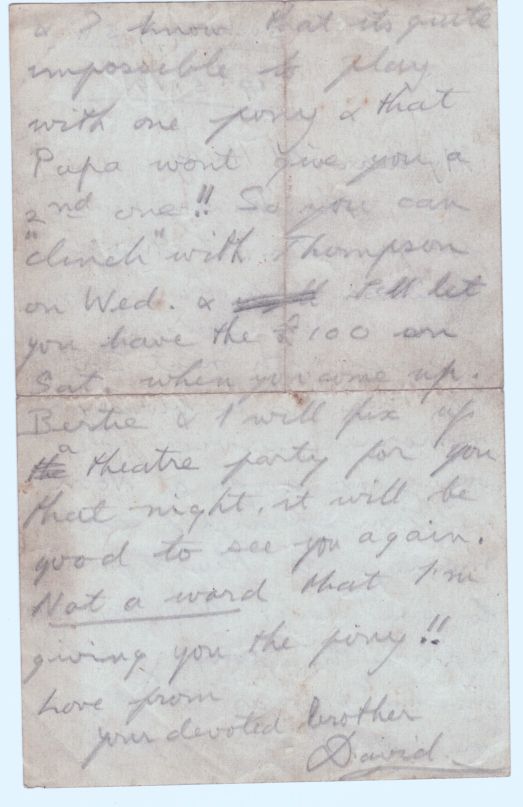 & I know that its quite
impossible to play
with one pony & that
Papa wont give you a
2nd one!! So you can
"clinch" with Thompson
on Wed. & I'll let
you have the £100 on
Sat. when you come up.
Bertie & I will fix up
a theatre party for you
that night, it will be
good to see you again.
Not a word that I'm
giving you the pony!!
Love from
your devoted brother
David